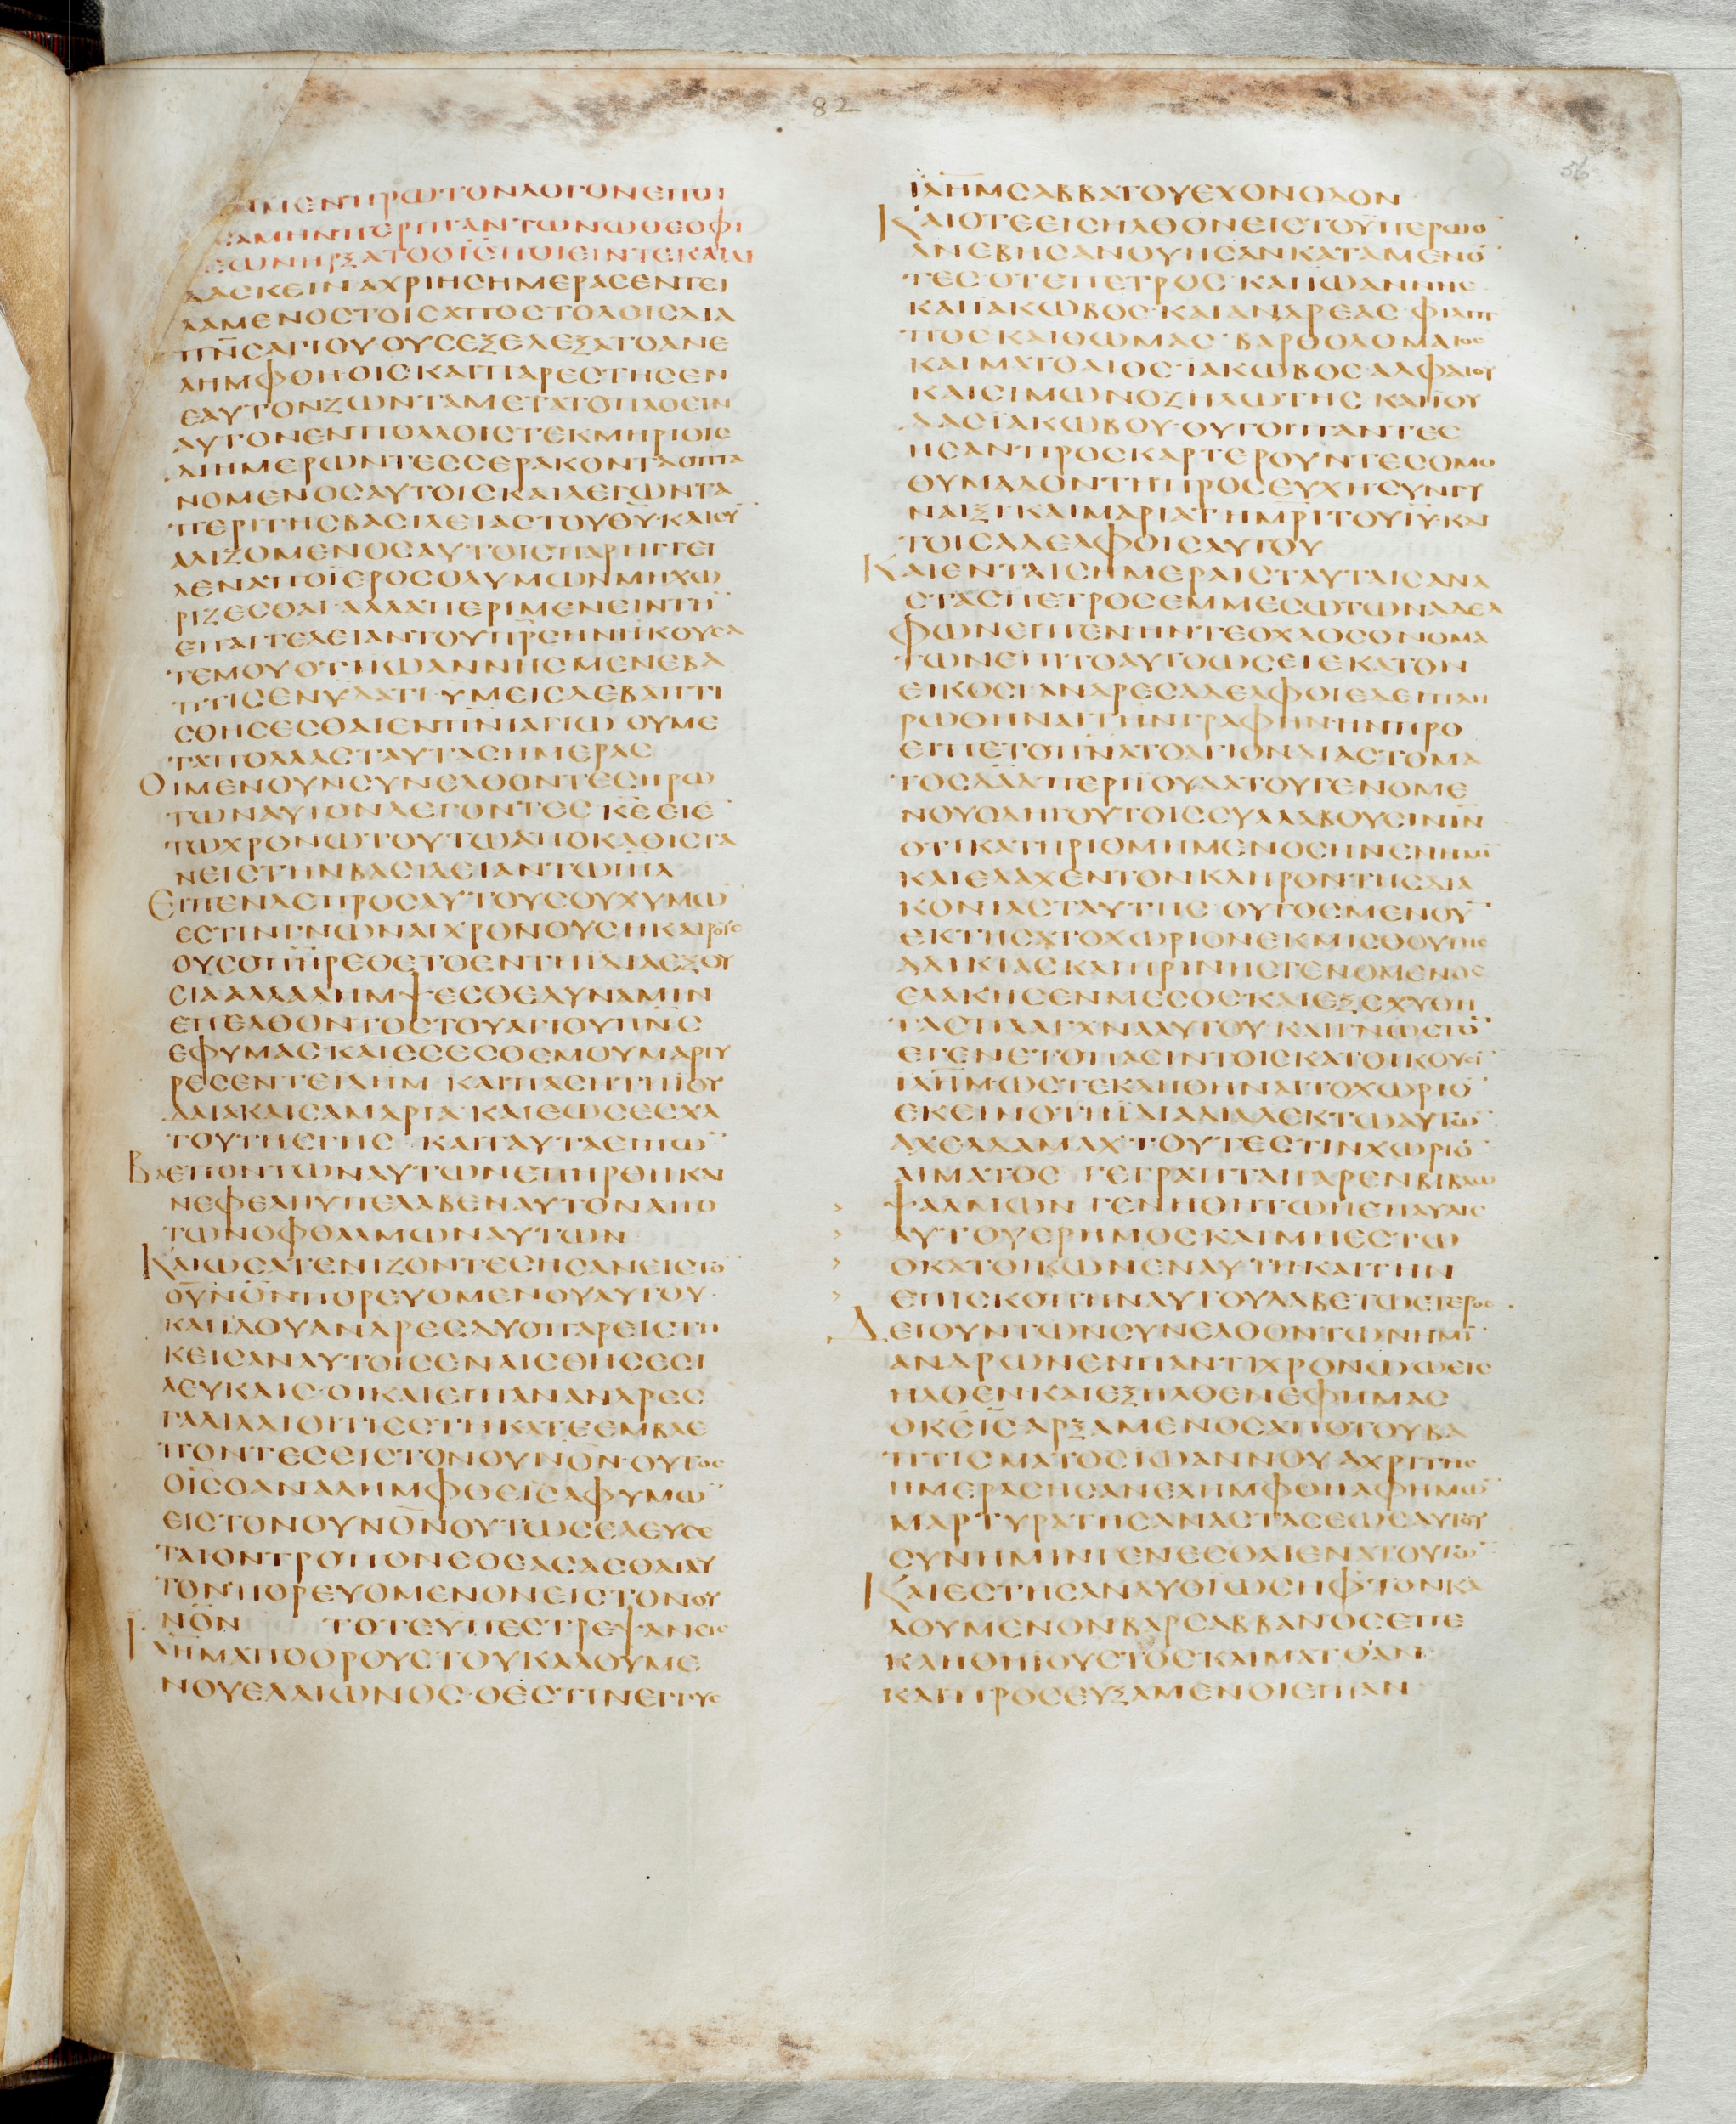 82
56
ΜΕΝΠΡΩΤΟΝΛΟΓΟΝΕΠΟΙ
ΣΑΜΗΝΠΕΡΙΠΑΝΤΩΝΩΘΕΟΦΙ
ΕΩΝΗΡΞΑΤΟΟΙ̅Σ̅ΠΟΙΕΙΝΤΕΚΑΙΔΙ
ΔΑΣΚΕΙΝΑΧΡΙΗΣΗΜΕΡΑΣΕΝΤΕΙ
ΛΑΜΕΝΟΣΤΟΙΣΑΠΟΣΤΟΛΟΙΣΔΙΑ
Π̅Ν̅Σ̅ΑΓΙΟΥΟΥΣΕΞΕΛΕΞΑΤΟΑΝΕ
ΛΗΜΦΘΗ·ΟΙΣΚΑΙΠΑΡΕΣΤΗΣΕΝ
ΕΑΥΤΟΝΖΩΝΤΑΜΕΤΑΤΟΠΑΘΕΙΝ
ΑΥΤΟΝΕΝΠΟΛΛΟΙΣΤΕΚΜΗΡΙΟΙΣ
ΔΙΗΜΕΡΩΝΤΕΣΣΕΡΑΚΟΝΤΑΟΠΤΑ
ΝΟΜΕΝΟΣΑΥΤΟΙΣΚΑΙΛΕΓΩΝΤΑ
ΠΕΡΙΤΗΣΒΑΣΙΛΕΙΑΣΤΟΥΘ̅Υ̅·ΚΑΙΣΥ̅
ΑΛΙΖΟΜΕΝΟΣΑΥΤΟΙΣΠΑΡΗΓΓΕΙ
ΛΕΝΑΠΟΪΕΡΟΣΟΛΥΜΩΝΜΗΧΩ
ΡΙΖΕΣΘΑΙ·ΑΛΛΑΠΕΡΙΜΕΝΕΙΝΤΗ̅
ΕΠΑΓΓΕΛΕΙΑΝΤΟΥΠ̅Ρ̅Σ̅ΗΝΗΚΟΥΣΑ
ΤΕΜΟΥΟΤΙΪΩΑΝΝΗΣΜΕΝΕΒΑ
ΠΤΙΣΕΝΥΔΑΤΙ·ΥΜΕΙΣΔΕΒΑΠΤΙ
ΣΘΗΣΕΣΘΑΙΕΝΠ̅Ν̅Ι̅ΑΓΙΩ·ΟΥΜΕ
ΤΑΠΟΛΛΑΣΤΑΥΤΑΣΗΜΕΡΑΣ
ΟΙΜΕΝΟΥΝΣΥΝΕΛΘΟΝΤΕΣΗΡΩ
ΤΩΝΑΥΤΟΝΛΕΓΟΝΤΕΣ Κ̅Ε̅ΕΙΕ̅
ΤΩΧΡΟΝΩΤΟΥΤΩΑΠΟΚΑΘΙΣΤΑ
ΝΕΙΣΤΗΝΒΑΣΙΛΕΙΑΝΤΩΙ̅Η̅Λ̅
ΕΙΠΕΝΔΕΠΡΟΣΑΥΤΟΥΣΟΥΧΥΜΩ̅
ΕΣΤΙΝΓΝΩΝΑΙΧΡΟΝΟΥΣΗΚΑΙΡΟΥΣ
ΟΥΣΟΠ̅Η̅Ρ̅ΕΘΕΤΟΕΝΤΗΙΔΙΑΕΞΟΥ
ΣΙΑΑΛΛΑΛΗΜΨΕΣΘΕΔΥΝΑΜΙΝ
ΕΠΕΛΘΟΝΤΟΣΤΟΥΑΓΙΟΥΠ̅Ν̅Σ̅
ΕΦΥΜΑΣ·ΚΑΙΕΣΕΣΘΕΜΟΥΜΑΡΤΥ
ΡΕΣΕΝΤΕΙΛ̅Η̅Μ̅ ΚΑΙΠΑΣΗΤΗΙΟΥ
ΔΑΙΑΚΑΙΣΑΜΑΡΙΑ·ΚΑΙΕΩΣΕΣΧΑ
ΤΟΥΤΗΣΓΗΣ ΚΑΙΤΑΥΤΑΕΙΠΩ̅
ΒΛΕΠΟΝΤΩΝΑΥΤΩΝΕΠΗΡΘΗΚΑΙ
ΝΕΦΕΛΗΥΠΕΛΑΒΕΝΑΥΤΟΝΑΠΟ
ΤΩΝΟΦΘΑΛΜΩΝΑΥΤΩΝ
ΚΑΙΩΣΑΤΕΝΙΖΟΝΤΕΣΗΣΑΝΕΙΣΤΟ̅
ΟΥΝΟ̅Ν̅ΠΟΡΕΥΟΜΕΝΟΥΑΥΤΟΥ·
ΚΑΙΪΔΟΥΑΝΔΡΕΣΔΥΟΠΑΡΕΙΣΤΗ
ΚΕΙΣΑΝΑΥΤΟΙΣΕΝΑΙΣΘΗΣΕΣΙ
ΛΕΥΚΑΙΣ·ΟΙΚΑΙΕΙΠΑΝΑΝΔΡΕΣ
ΓΑΛΙΛΑΙΟΙΤΙΕΣΤΗΚΑΤΕΕΜΒΛΕ
ΠΟΝΤΕΣΕΙΣΤΟΝΟΥΝΟ̅Ν̅·ΟΥΤΟΣ
ΟΙ̅Σ̅ΟΑΝΑΛΗΜΦΘΕΙΣΑΦΥΜΩ̅
ΕΙΣΤΟΝΟΥΝΟ̅Ν̅ΟΥΤΩΣΕΛΕΥΣΕ
ΤΑΙΟΝΤΡΟΠΟΝΕΘΕΑΣΑΣΘΑΙΑΥ
ΤΟΝΠΟΡΕΥΟΜΕΝΟΝΕΙΣΤΟΝΟΥ
ΝΟ̅Ν̅ ΤΟΤΕΥΠΕΣΤΡΕΨΑΝΕΙΣ
Ι̅Λ̅Η̅Μ̅ΑΠΟΟΡΟΥΣΤΟΥΚΑΛΟΥΜΕ
ΝΟΥΕΛΑΙΩΝΟΣ·ΟΕΣΤΙΝΕΓΓΥΣ
Ι̅Λ̅Η̅Μ̅ΣΑΒΒΑΤΟΥΕΧΟΝΟΔΟΝ
ΚΑΙΟΤΕΕΙΣΗΛΘΟΝΕΙΣΤΟΥΠΕΡΩΙΟ̅
ΑΝΕΒΗΣΑΝΟΥΗΣΑΝΚΑΤΑΜΕΝΟ̅
ΤΕΣΟΤΕΠΕΤΡΟΣ·ΚΑΙΪΩΑΝΝΗΣ
ΚΑΙΪΑΚΩΒΟΣ·ΚΑΙΑΝΔΡΕΑΣ·ΦΙΛΙΠ
ΠΟΣΚΑΙΘΩΜΑΣ·ΒΑΡΘΟΛΟΜΑΙΟΣ
ΚΑΙΜΑΤΘΑΙΟΣ·ΪΑΚΩΒΟΣΑΛΦΑΙΟΥ
ΚΑΙΣΙΜΩΝΟΖΗΛΩΤΗΣ·ΚΑΙΪΟΥ
ΔΑΣΪΑΚΩΒΟΥ·ΟΥΤΟΙΠΑΝΤΕΣ
ΗΣΑΝΠΡΟΣΚΑΡΤΕΡΟΥΝΤΕΣΟΜΟ
ΘΥΜΑΔΟΝΤΗΠΡΟΣΕΥΧΗΣΥΝΓΥ
ΝΑΙΞΙ·ΚΑΙΜΑΡΙΑΤΗΜ̅Ρ̅Ι̅ΤΟΥΙ̅Υ̅·ΚΑΙ
ΤΟΙΣΑΔΕΛΦΟΙΣΑΥΤΟΥ
ΚΑΙΕΝΤΑΙΣΗΜΕΡΑΙΣΤΑΥΤΑΙΣΑΝΑ
ΣΤΑΣΠΕΤΡΟΣΕΜΜΕΣΩΤΩΝΑΔΕΛ
ΦΩΝΕΙΠΕΝ·ΗΝΤΕΟΧΛΟΣΟΝΟΜΑ
ΤΩΝΕΠΙΤΟΑΥΤΟΩΣΕΙΕΚΑΤΟΝ
ΕΙΚΟΣΙ·ΑΝΔΡΕΣΑΔΕΛΦΟΙΕΔΕΙΠΛΗ
ΡΩΘΗΝΑΙΤΗΝΓΡΑΦΗΝ·ΗΝΠΡΟ
ΕΙΠΕΤΟΠ̅Ν̅Α̅ΤΟΑΓΙΟΝΔΙΑΣΤΟΜΑ
ΤΟΣΔ̅Α̅Δ̅ΠΕΡΙΪΟΥΔΑΤΟΥΓΕΝΟΜΕ
ΝΟΥΟΔΗΓΟΥΤΟΙΣΣΥΛΛΑΒΟΥΣΙΝΙ̅Ν̅
ΟΤΙΚΑΤΗΡΙΘΜΗΜΕΝΟΣΗΝΕΝΗΜΙ̅
ΚΑΙΕΛΑΧΕΝΤΟΝΚΛΗΡΟΝΤΗΣΔΙΑ
ΚΟΝΙΑΣΤΑΥΤΗΣ ΟΥΤΟΣΜΕΝΟΥ̅
ΕΚΤΗΣΑΤΟΧΩΡΙΟΝΕΚΜΙΣΘΟΥΤΗΣ
ΑΔΙΚΙΑΣΚΑΙΠΡΙΝΗΣΓΕΝΟΜΕΝΟΣ
ΕΛΑΚΗΣΕΝΜΕΣΟΣ·ΚΑΙΕΞΕΧΥΘΗ
ΤΑΣΠΛΑΓΧΝΑΑΥΤΟΥ·ΚΑΙΓΝΩΣΤΟ̅
ΕΓΕΝΕΤΟΠΑΣΙΝΤΟΙΣΚΑΤΟΙΚΟΥΣΙ̅
Ι̅Λ̅Η̅Μ̅·ΩΣΤΕΚΛΗΘΗΝΑΙΤΟΧΩΡΙΟ̅
ΕΚΕΙΝΟΤΗΪΔΙΑΔΙΑΛΕΚΤΩΑΥΤΩ̅
ΑΧΕΛΔΑΜΑΧ·ΤΟΥΤΕΣΤΙΝΧΩΡΙΟ̅
ΑΙΜΑΤΟΣ ΓΕΓΡΑΠΤΑΙΓΑΡΕΝΒΙΒΛΩ
> ΨΑΛΜΩΝ ΓΕΝΗΘΗΤΩΗΕΠΑΥΛΙΣ
> ΑΥΤΟΥΕΡΗΜΟΣ·ΚΑΙΜΗΕΣΤΩ
> ΟΚΑΤΟΙΚΩΝΕΝΑΥΤΗ·ΚΑΙΤΗΝ
> ΕΠΙΣΚΟΠΗΝΑΥΤΟΥΛΑΒΕΤΩΕΤΕΡΟΣ
ΔΕΙΟΥΝΤΩΝΣΥΝΕΛΘΟΝΤΩΝΗΜΙ̅
ΑΝΔΡΩΝΕΝΠΑΝΤΙΧΡΟΝΩΩΕΙΣ
ΗΛΘΕΝΚΑΙΕΞΗΛΘΕΝΕΦΗΜΑΣ
ΟΚ̅Σ̅Ι̅Σ̅ΑΡΞΑΜΕΝΟΣΑΠΟΤΟΥΒΑ
ΠΤΙΣΜΑΤΟΣΙΩΑΝΝΟΥ·ΑΧΡΙΤΗΣ
ΗΜΕΡΑΣΗΣΑΝΕΛΗΜΦΘΗΑΦΗΜΩ̅
ΜΑΡΤΥΡΑΤΗΣΑΝΑΣΤΑΣΕΩΣΑΥΤΟΥ
ΣΥΝΗΜΙΝΓΕΝΕΣΘΑΙΕΝΑΤΟΥΤΩ̅
ΚΑΙΕΣΤΗΣΑΝΔΥΟΪΩΣΗΦΤΟΝΚΑ
ΛΟΥΜΕΝΟΝΒΑΡΣΑΒΒΑΝΟΣΕΠΕ
ΚΛΗΘΗΪΟΥΣΤΟΣΚΑΙΜΑΤΘΑΝ
ΚΑΙΠΡΟΣΕΥΞΑΜΕΝΟΙΕΙΠΑΝ